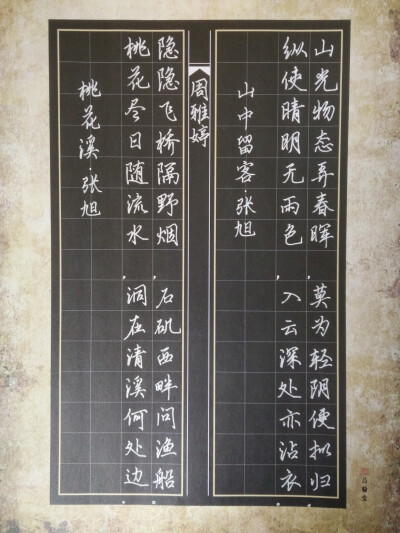 山光物态弄春晖，莫为轻阴便拟归。
纵使晴明无雨色，入云深处亦沾衣。
山中留客 张旭
周雅婷
隐隐飞桥隔野烟，石矶西畔问渔船。
桃花尽日随流水，洞在清溪何处边。
桃花溪 张旭